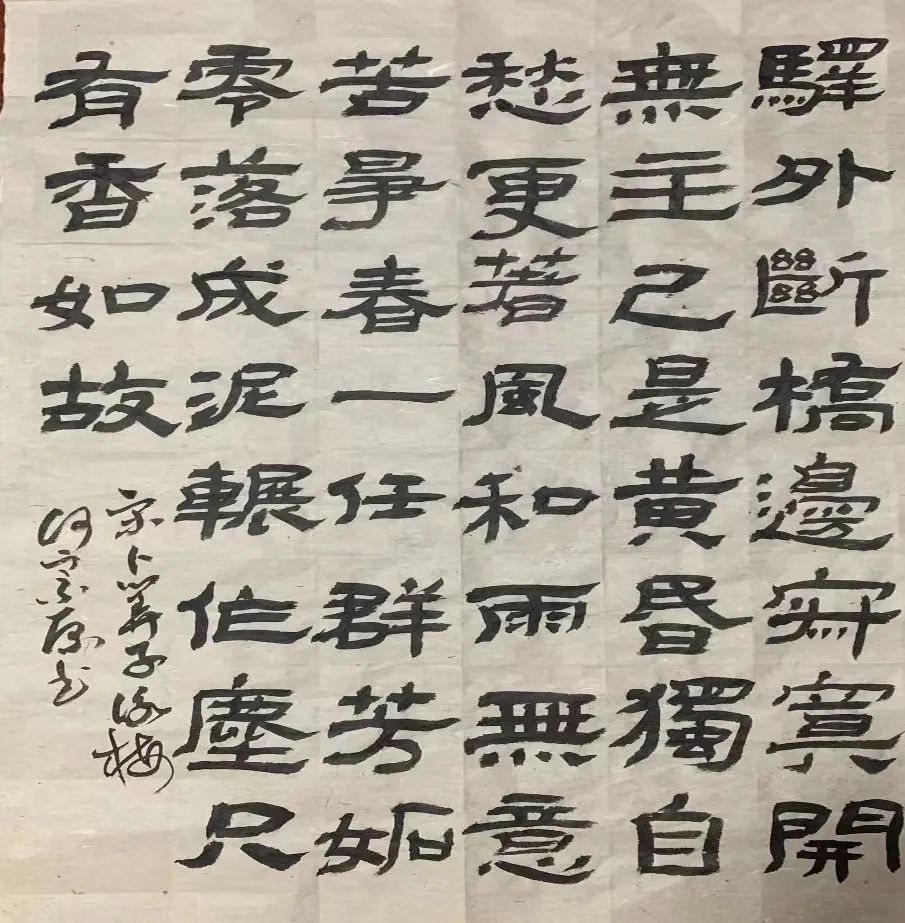 驛外斷橋邊寂寞開
無主已是黃昏獨自
愁更著風和雨無意
苦爭春一任群芳妬
零落成泥輾作塵只
有香如故
宋卜算子詠梅